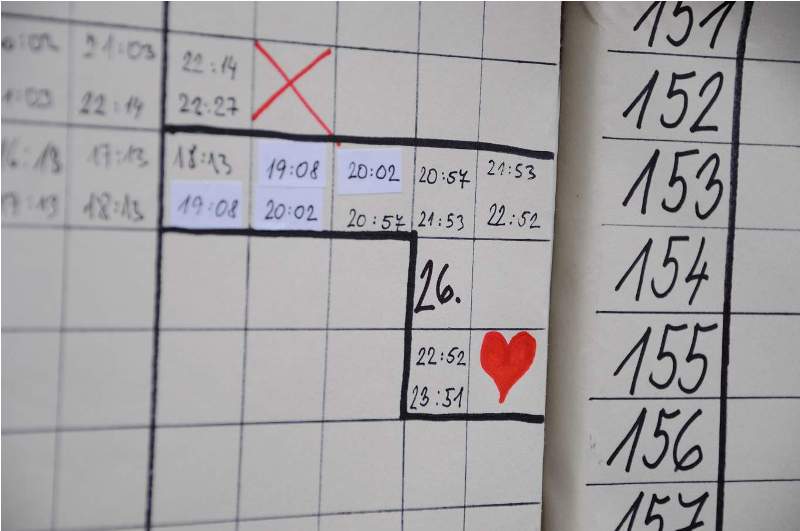 21:03 22:14
22:14 22:27
17:13 18:13 19:08 20:02 20:57 21:53
18:13 19:08 20:02 20:57 21:53 22:52
26.
22:52
23:51
151
152
153
154
155
156
157